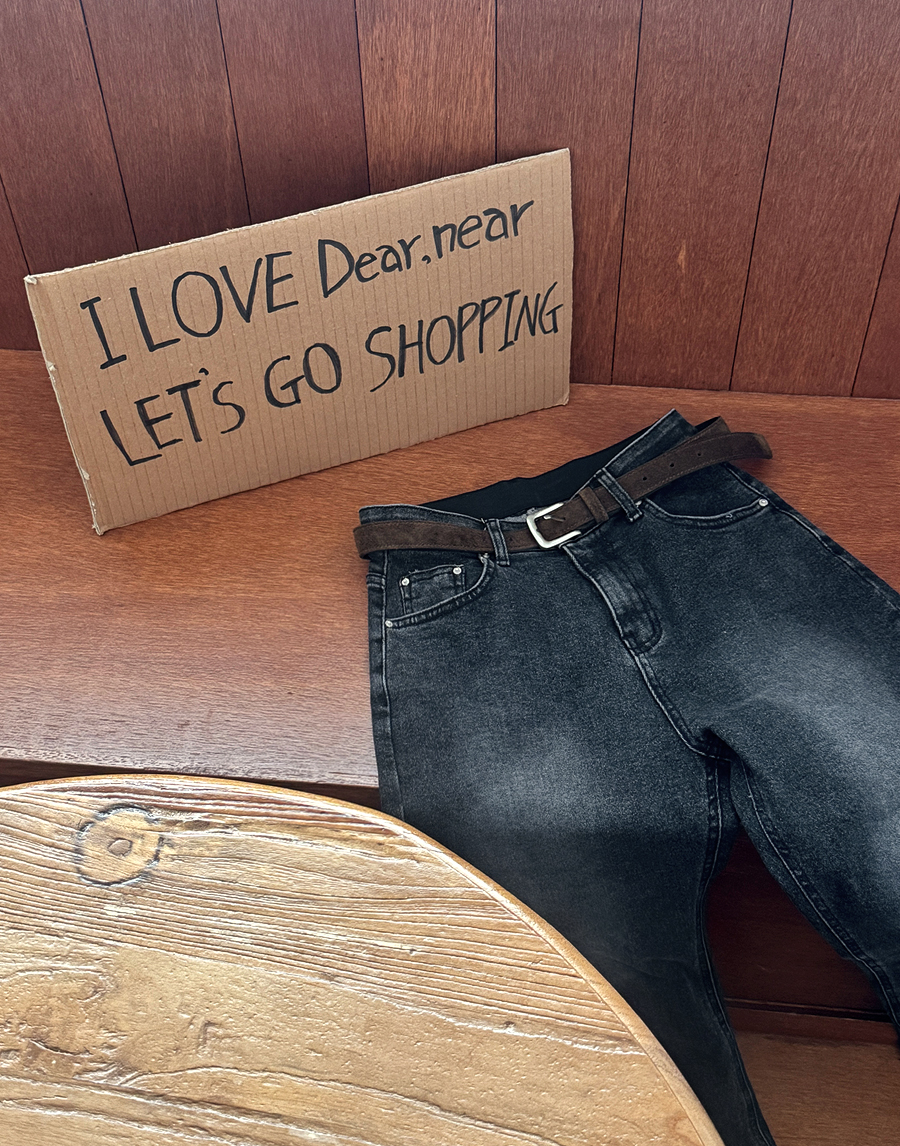 I LOVE Dear,near
LET'S GO SHOPPING